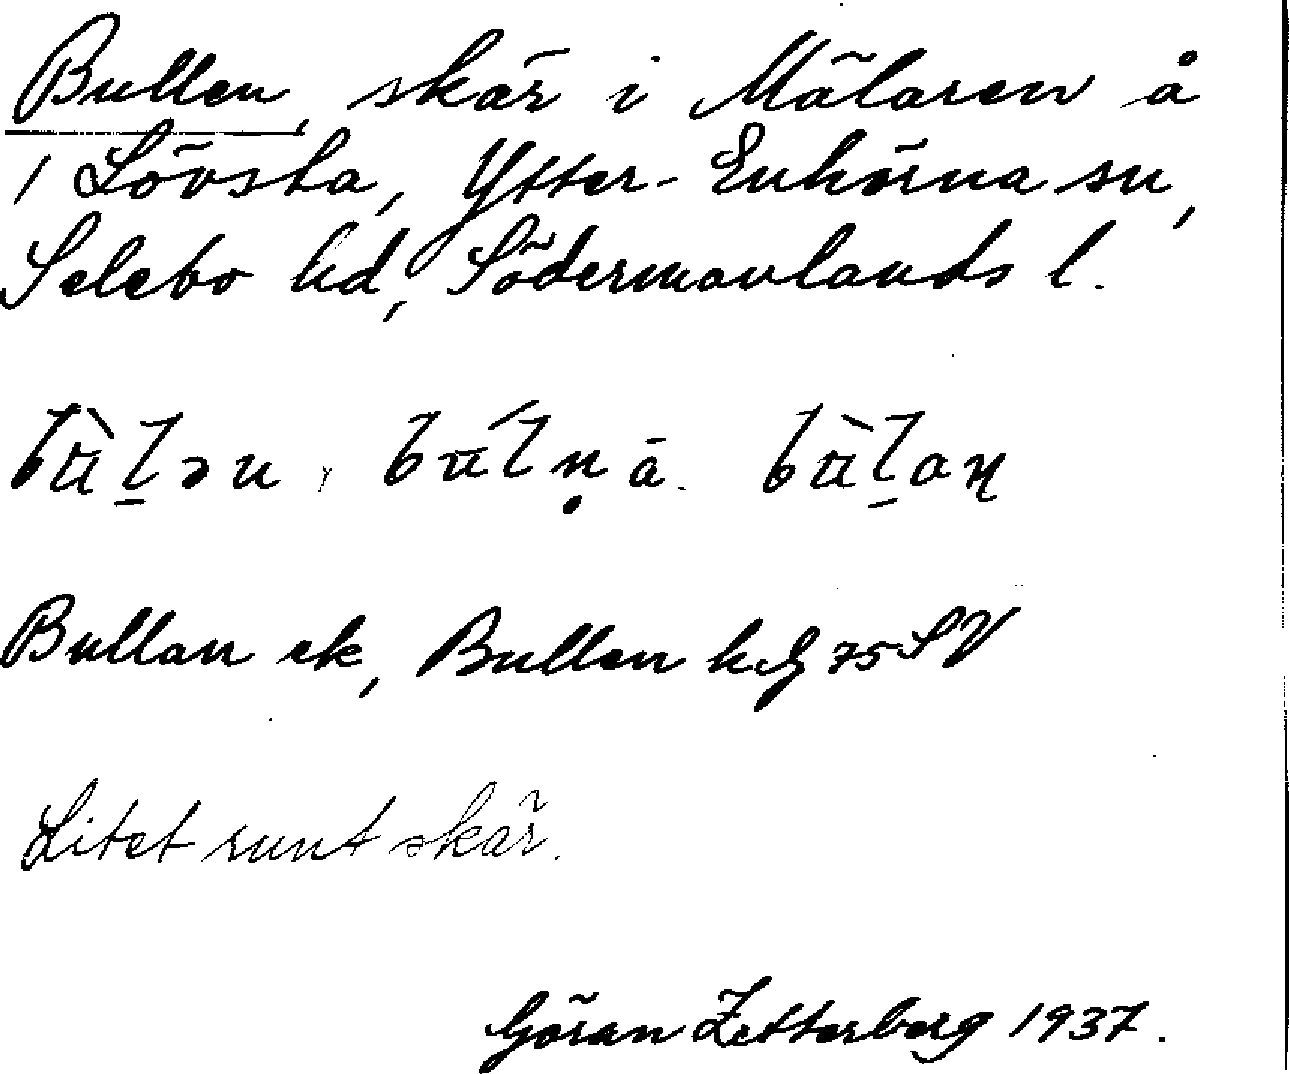 Bullen, skär i Mälaren å
1 Lövsta, Ytter-Enhörna sn,
Selebo hd, Södermanlands l.
Bullan ek, Bullen h.G 75 SV
Litet runt skär.
Göran Zetterberg 1937.